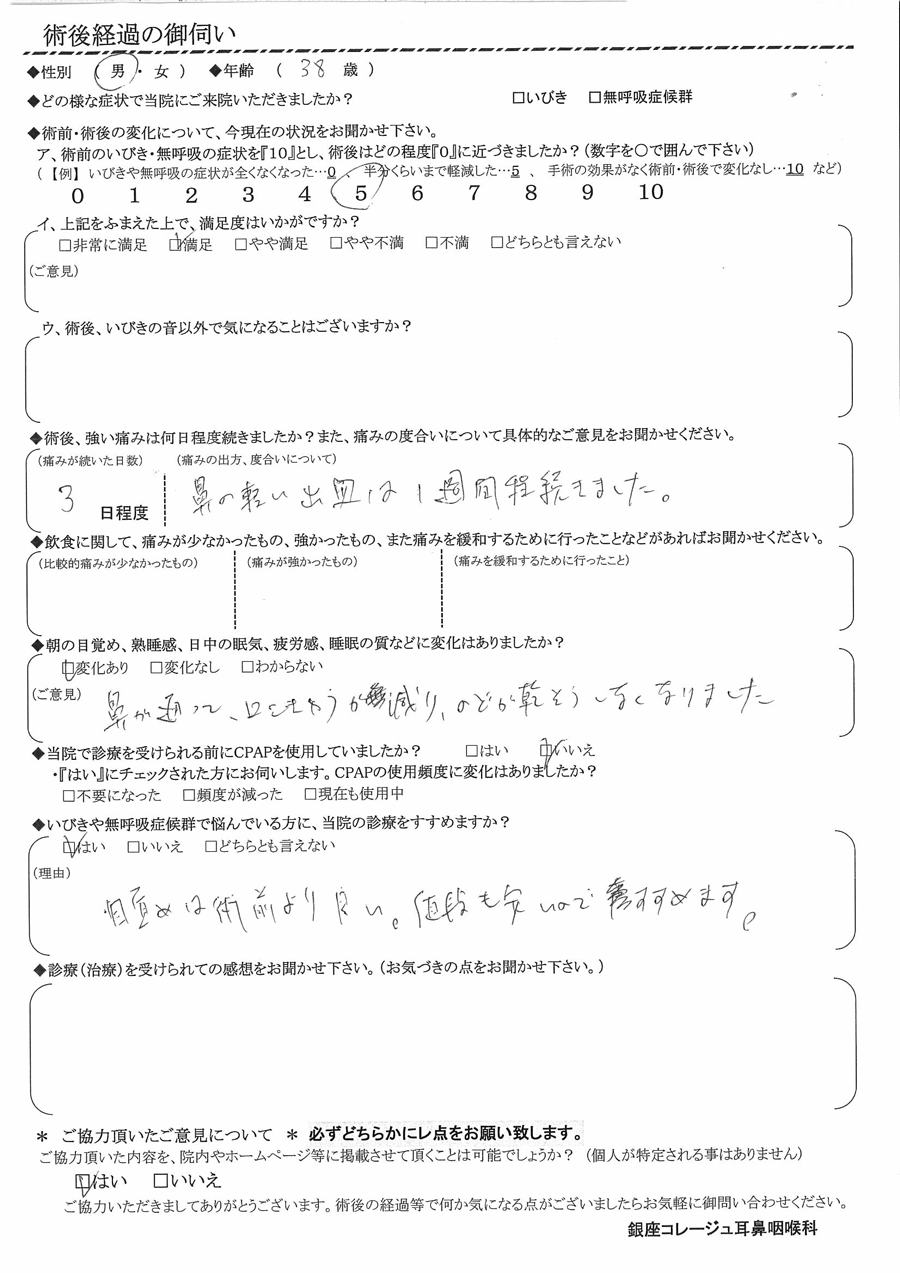 術後経過の御伺い
◆性別 （ 男 ・ 女 ） ◆年齢 （ 38 歳 ）
◆どの様な症状で当院にご来院いただきましたか？ □いびき □無呼吸症候群
◆術前・術後の変化について、今現在の状況をお聞かせ下さい。
ア、術前のいびき・無呼吸の症状を『10』とし、術後はどの程度『0』に近づきましたか？（数字を○で囲んで下さい）
（【例】 いびきや無呼吸の症状が全くなくなった…0 、 半分くらいまで軽減した…5 、 手術の効果がなく術前・術後で変化なし…10 など）
0 1 2 3 4 5 6 7 8 9 10
イ、上記をふまえた上で、満足度はいかがですか？
□非常に満足 ☑満足 □やや満足 □やや不満 □不満 □どちらとも言えない
（ご意見）
ウ、術後、いびきの音以外で気になることはございますか？
◆術後、強い痛みは何日程度続きましたか？また、痛みの度合いについて具体的なご意見をお聞かせください。
（痛みが続いた日数） （痛みの出方、度合いについて）
3 日程度 鼻の軽い出血は1週間程続きました。
◆飲食に関して、痛みが少なかったもの、強かったもの、また痛みを緩和するために行ったことなどがあればお聞かせください。
（比較的痛みが少なかったもの） （痛みが強かったもの） （痛みを緩和するために行ったこと）
◆朝の目覚め、熟睡感、日中の眠気、疲労感、睡眠の質などに変化はありましたか？
☑変化あり □変化なし □わからない
（ご意見） 鼻が通って、口こきゅうが減り、のどが乾そうしなくなりました
◆当院で診療を受けられる前にCPAPを使用していましたか？ □はい ☑いいえ
・『はい』にチェックされた方にお伺いします。CPAPの使用頻度に変化はありましたか？
□不要になった □頻度が減った □現在も使用中
◆いびきや無呼吸症候群で悩んでいる方に、当院の診療をすすめますか？
☑はい □いいえ □どちらとも言えない
（理由）
目覚めは術前より良い。値段も安いのですすめます。
◆診療（治療）を受けられての感想をお聞かせ下さい。（お気づきの点をお聞かせ下さい。）
＊ ご協力頂いたご意見について ＊ 必ずどちらかにレ点をお願い致します。
ご協力頂いた内容を、院内やホームページ等に掲載させて頂くことは可能でしょうか？ （個人が特定される事はありません）
☑はい □いいえ
ご協力いただきましてありがとうございます。術後の経過等で何か気になる点がございましたらお気軽に御問い合わせください。
銀座コレージュ耳鼻咽喉科